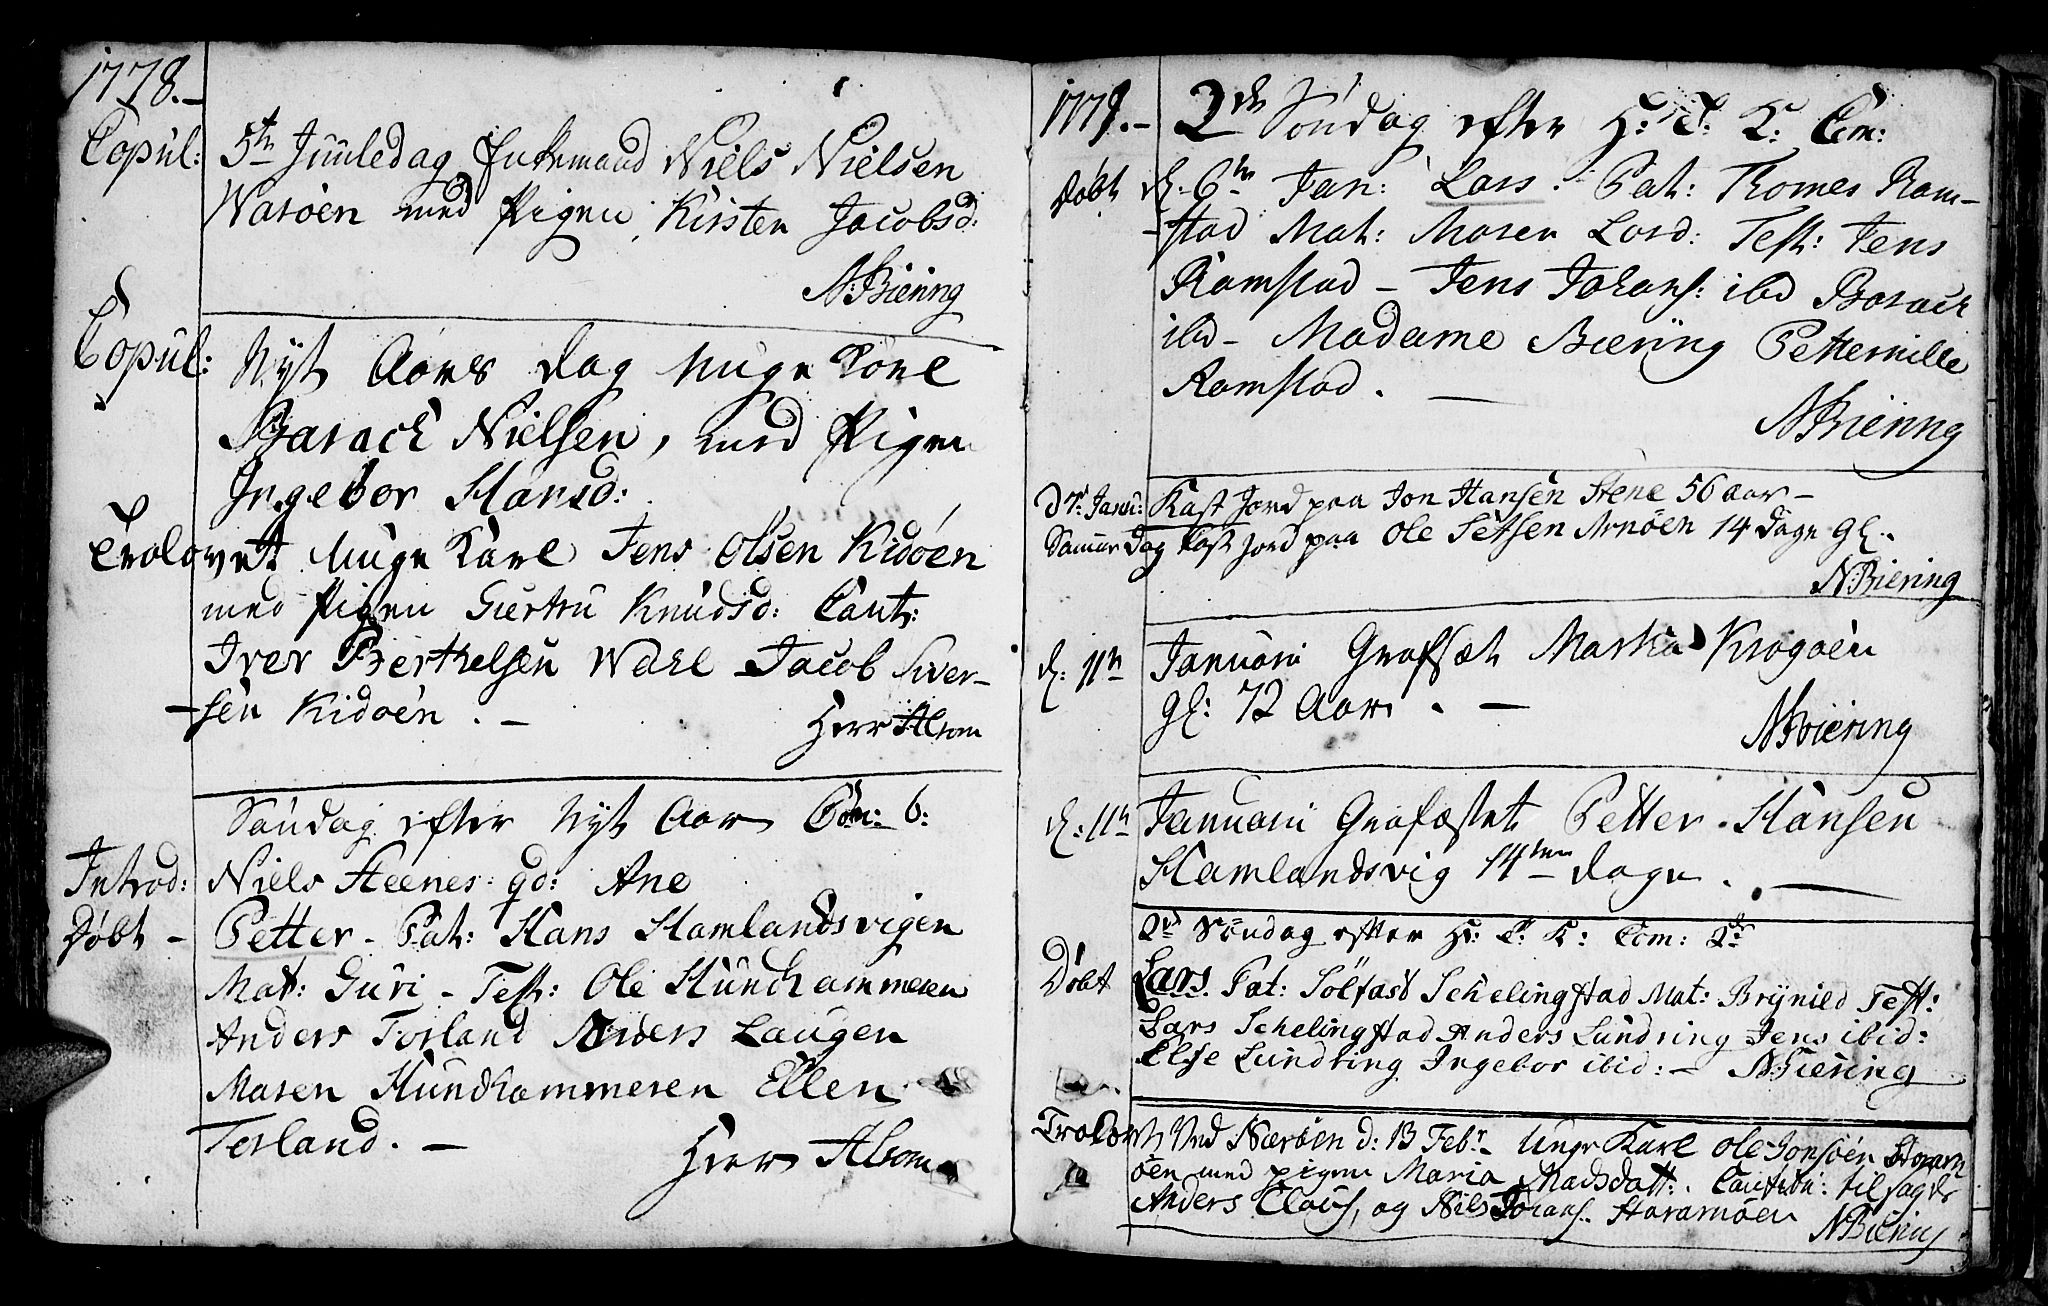 1778.-
Copul: 5te Juuledag Enkemand Niels Nielsen
Warøen med Pigen Kirsten Jacobsd:
N:Biering
Copul: Nyt Aars Dag unge Karl
Barach Nielsen, med Pigen
Ingebor Hansd:
Trolovet unge Karl Jens Olsen Kidøen
med Pigen Giertru Knudsd: Caut:
Iver Berthelsen Wahl Jacob Siver-
-sen Kidøen . -
Herr Alsom
Søndag efter Nyt Aar Com: 6:
Introd: Niels Steenes gd: Ane
Døbt - Petter - Pat: Hans Hamlandsvigen
Mat: Guri - Test: Ole Hundhammeren
Anders Torland Laugen
Maren Hundhammeren Ellen
Torland. -
Herr Alsom
1779.- 2den Søndag efter H: T: K: Com:
Døbt d. 6te Jan: Lars. Pat: Thomes Ram-
-stad Mat: Maren Lard: Test: Jens
Ramstad - Jens Johans: ibd Barach
ibd - Madame Biering Petternille
Ramstad. -
N Biering
D 7. Janu: Kast Jord paa Jon Hansen Stene 56 aar -
Samme Dag Kast jord paa Ole Setsen Arnøen 14 Dage gl.
N Biering
d: 11te Januari Grafsæt Marka Krogøen
gl: 72 Aar . -
N Biering
d: 11te Januari Grafæstet Petter Hansen
Hamlandsvig 14ten Dage . -
2d Søndag efter H: T: K: Com: 2de
Døbt Lars Pat: Sølfast Schelingstad Mat: Brynild Test:
Lars Schelingstad Anders Lundring Jens ibid:
Else Lundring Ingebor ibid: - N Biering
Trolovet Ved Nærøen d: 13 Febr. Unge Karl Ole Jonsøn
øen med pigen Maria Madsdatt: Cautitn: tilsagde
Anders Claus, og Nils Johans. Staramøen N Biering